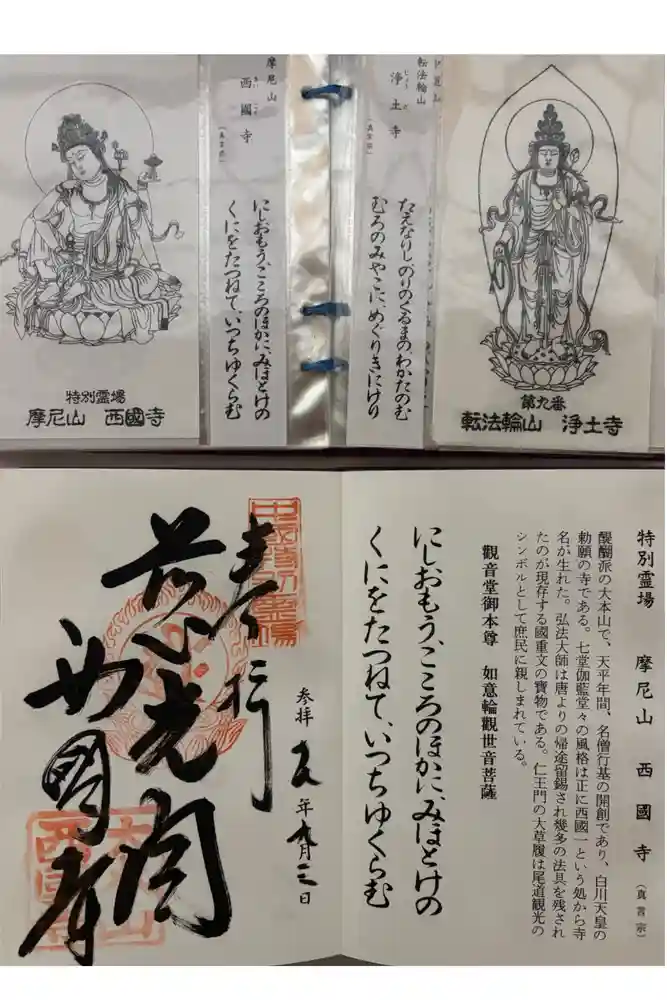 特別霊場
摩尼山 西國寺
摩尼山
西國寺
さいこくじ
(真言宗)
にしおもう、こころのほかに、みほとけの
くにをたつねて、いつちゆくらむ
転法輪山
浄土寺
じょうど
(真言宗)
たえなりし、のりのくるまの、わかたのむ
むろのみやこに、めぐりきにけり
第九番
転法輪山 浄土寺
特別霊場 摩尼山 西國寺 (真言宗)
醍醐派の大本山で、天平年間、名僧行基の開創であり、白川天皇の
勅願の寺である。七堂伽藍堂々の風格は正に西國一という処から寺
名が生れた。弘法大師は唐よりの帰途留錫され幾多の法具を残され
たのが現存する國重文の寶物である。仁王門の大草履は尾道観光の
シンボルとして庶民に親しまれている。
觀音堂御本尊 如意輪觀世音菩薩
にしおもう、こころのほかに、みほとけの
くにをたつねて、いつちゆくらむ
参拝 年 月 日
奉拝
西國寺